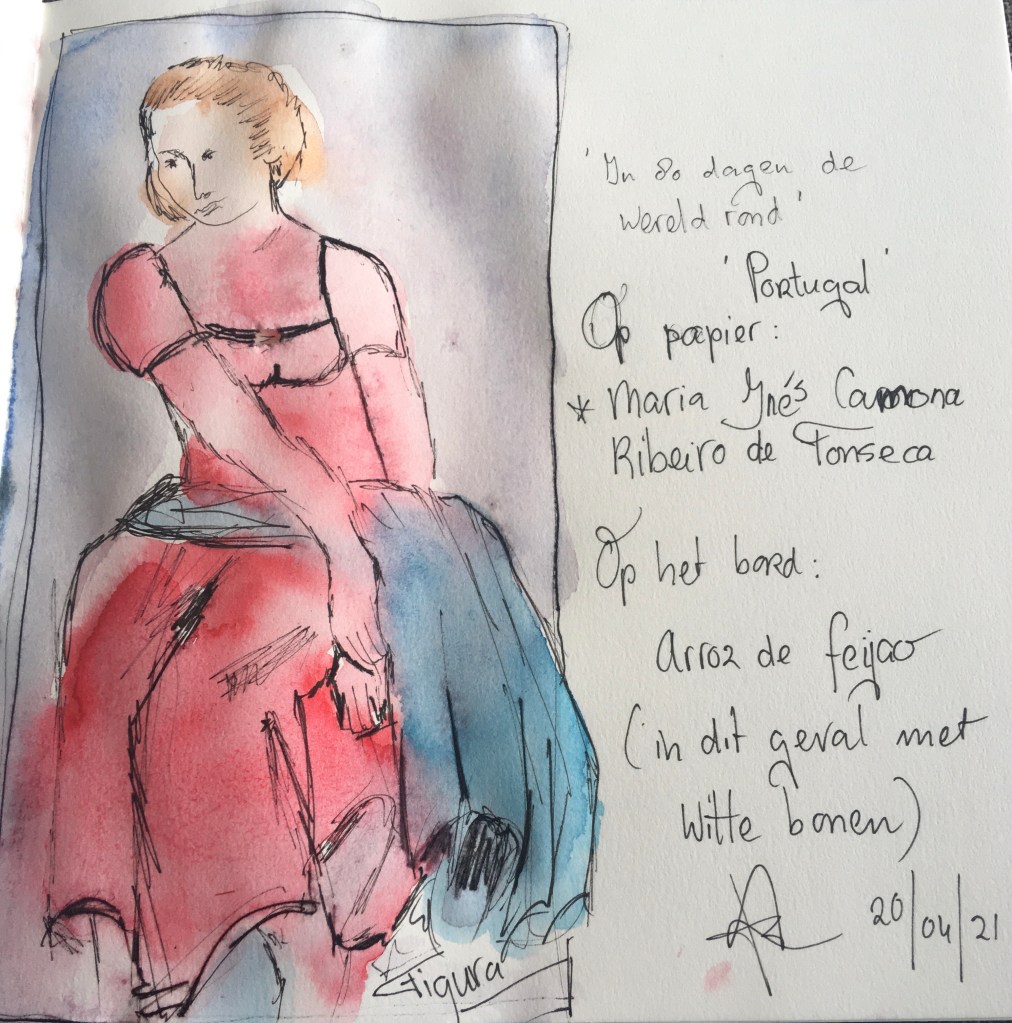 'In 80 dagen de
wereld rond'
'Portugal'
Op papier:
* Maria Ynés Camona
Ribeiro de Fonseca
Op het bord:
arroz de feijao
(in dit geval met
witte bonen)
20/04/21
Figura